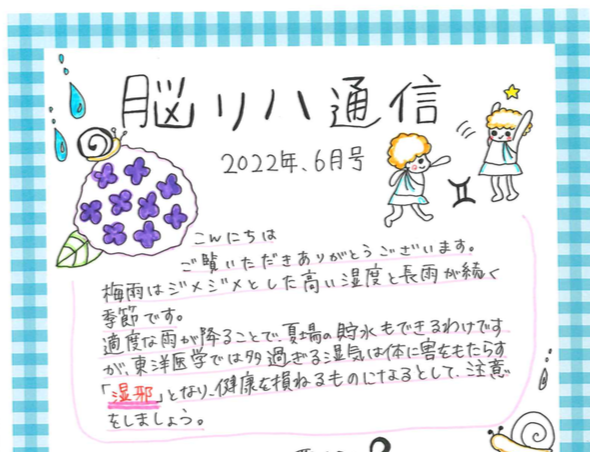 脳リハ通信
2022年、6月号
こんにちは
ご覧いただきありがとうございます。
梅雨はジメジメとした高い湿度と長雨が続く
季節です。
適度な雨が降ることで、夏場の貯水もできるわけです
が、東洋医学では多過ぎる湿気は体に害をもたらす
「湿邪」となり、健康を損ねるものになるとして、注意
をしましょう。